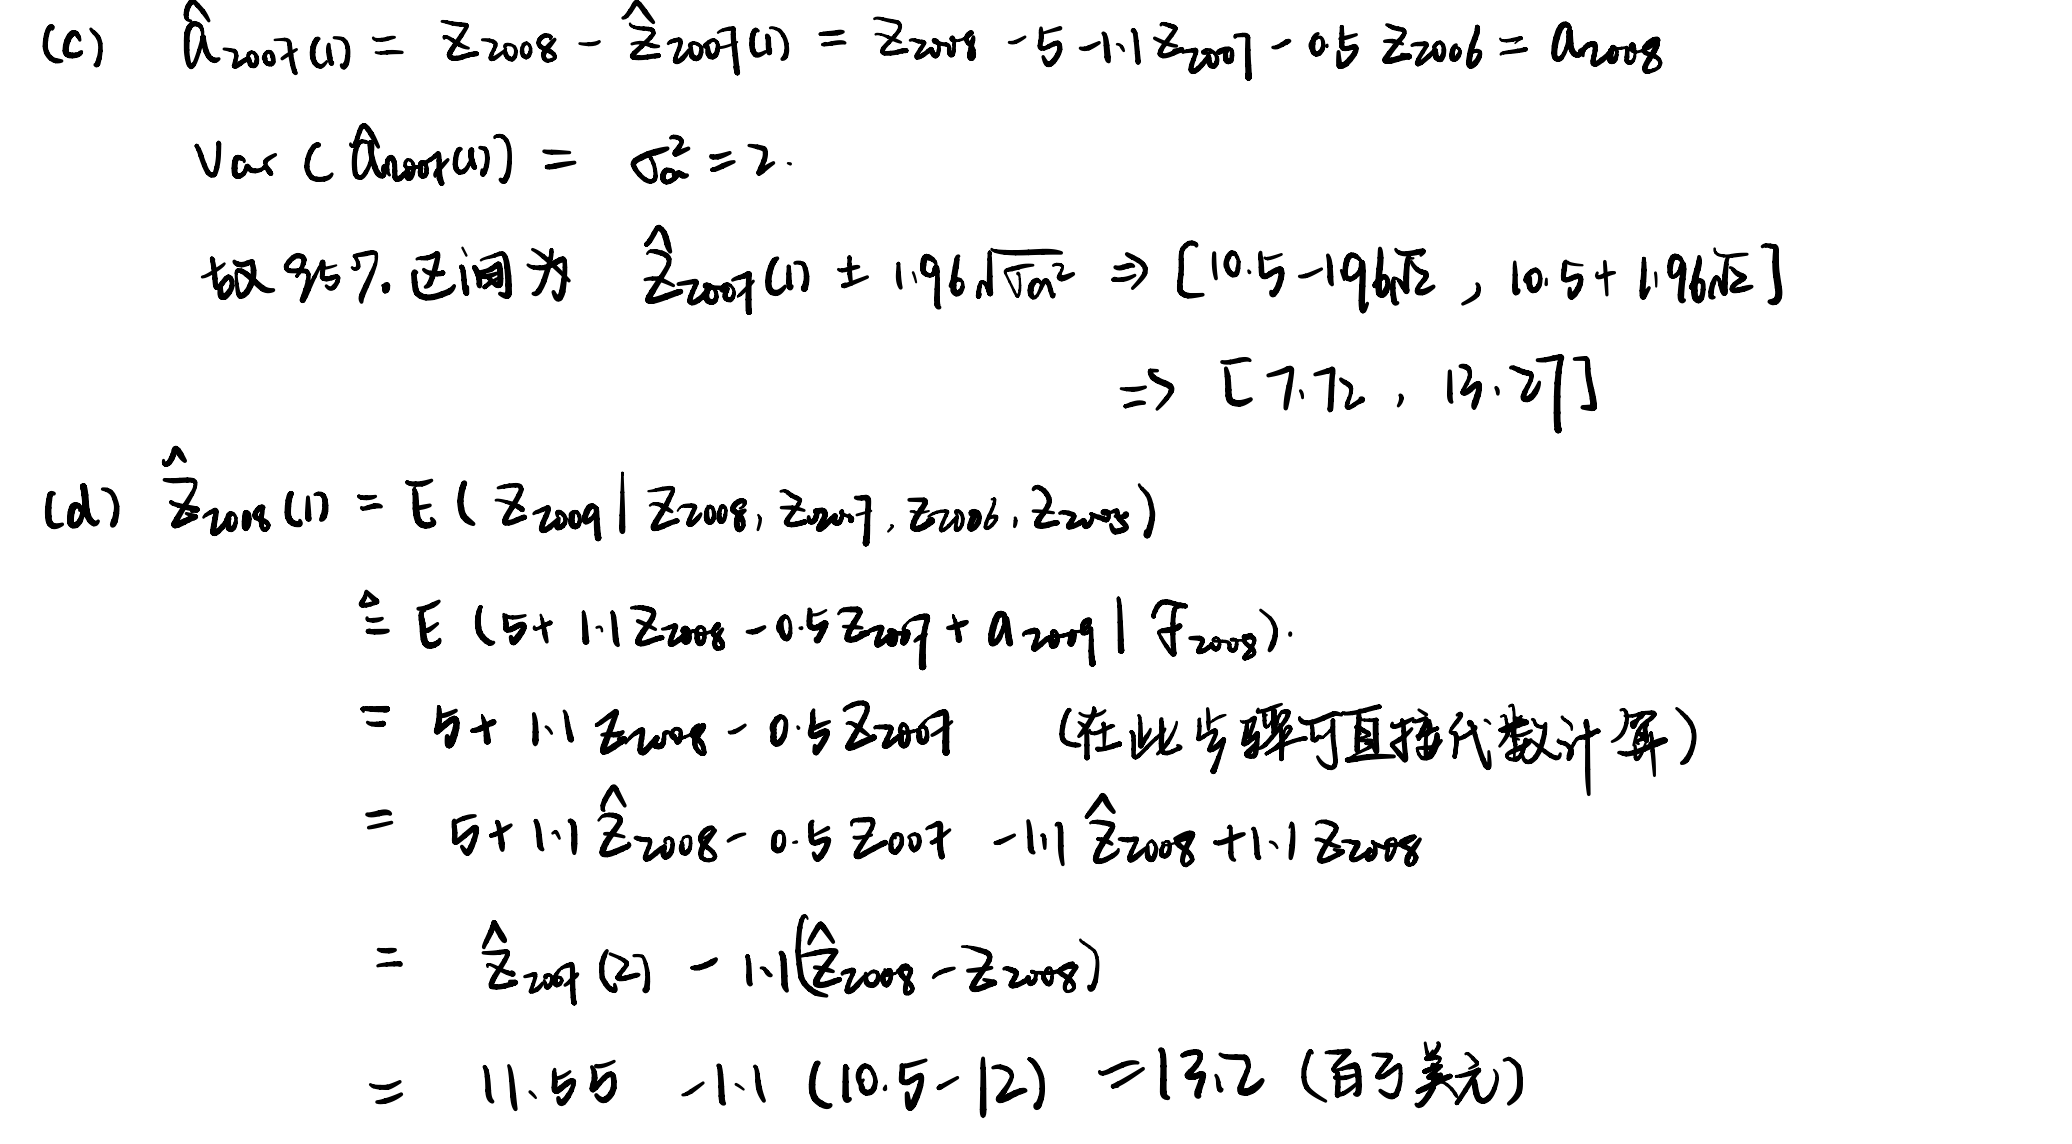 (c) â₂₀₀₇(1) = Z₂₀₀₈ - Ẑ₂₀₀₇(1) = Z₂₀₀₈ - 5 - 1.1 Z₂₀₀₇ - 0.5 Z₂₀₀₆ = a₂₀₀₈
Var (â₂₀₀₇(1)) = σₐ² = 2.
故95%区间为 Ẑ₂₀₀₇(1) ± 1.96√σₐ² ⇒ [10.5-1.96√2, 10.5+1.96√2]
⇒ [7.72, 13.27]
(d) Ẑ₂₀₀₈(1) = E(Z₂₀₀₉|Z₂₀₀₈, Z₂₀₀₇, Z₂₀₀₆, Z₂₀₀₅)
≜ E(5+1.1Z₂₀₀₈-0.5Z₂₀₀₇+a₂₀₀₉|ℱ₂₀₀₈).
= 5+1.1Z₂₀₀₈-0.5Z₂₀₀₇ (在此步骤可直接代数计算)
= 5+1.1Ẑ₂₀₀₈-0.5Z₀₀₇-1.1Ẑ₂₀₀₈+1.1Z₂₀₀₈
= Ẑ₂₀₀₇(2) - 1.1(Ẑ₂₀₀₈-Z₂₀₀₈)
= 11.55 - 1.1(10.5-12) = 13.2 (百万美元)